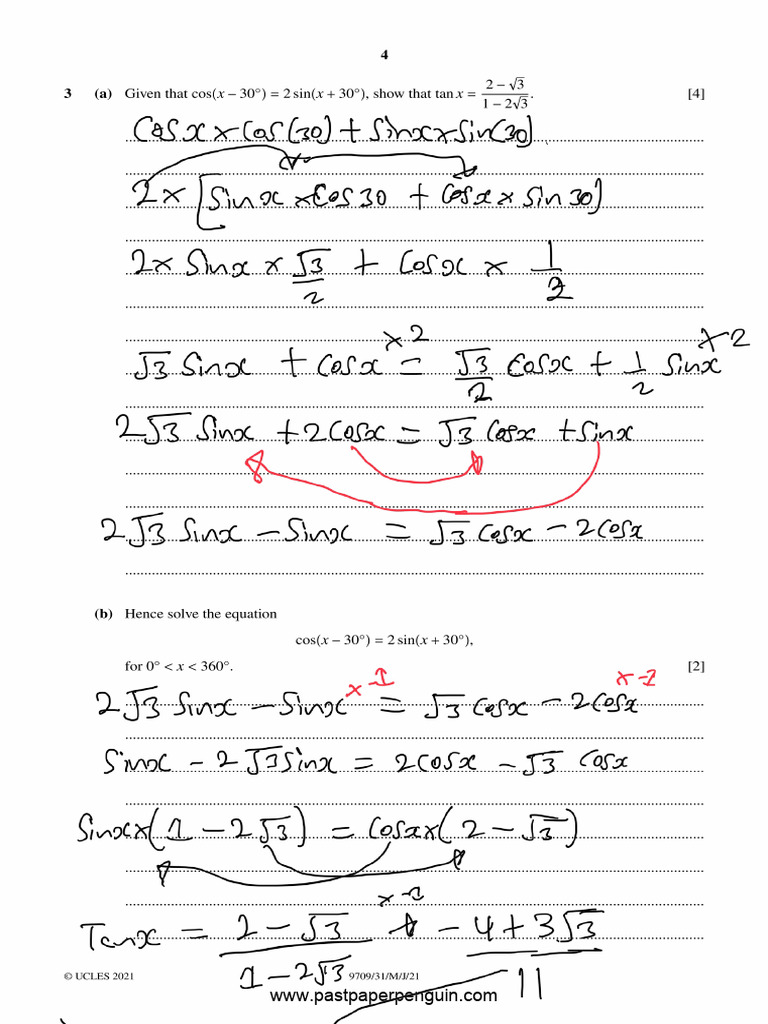 4
3 (a) Given that cos(x – 30°) = 2 sin(x + 30°), show that tan x = (2 – √3)/(1 – 2√3). [4]
Cosx × Cos(30) + Sinx × Sin(30)
2 × [Sinx × Cos30 + Cosx × Sin30]
2 × Sinx × √3/2 + Cosx × 1/2
×2 ×2
√3 Sinx + Cosx = √3/2 Cosx + 1/2 Sinx
2√3 Sinx + 2Cosx = √3 Cosx + Sinx
2√3 Sinx – Sinx = √3 Cosx – 2Cosx
(b) Hence solve the equation
cos(x – 30°) = 2 sin(x + 30°),
for 0° < x < 360°. [2]
× -1 × -1
2√3 Sinx – Sinx = √3 Cosx – 2Cosx
Sinx – 2√3 Sinx = 2Cosx – √3 Cosx
Sinx × (1 – 2√3) = Cosx × (2 – √3)
× -1
Tanx = (2 – √3)/(1 – 2√3) (-4 + 3√3)/11
© UCLES 2021 9709/31/M/J/21
www.pastpaperpenguin.com